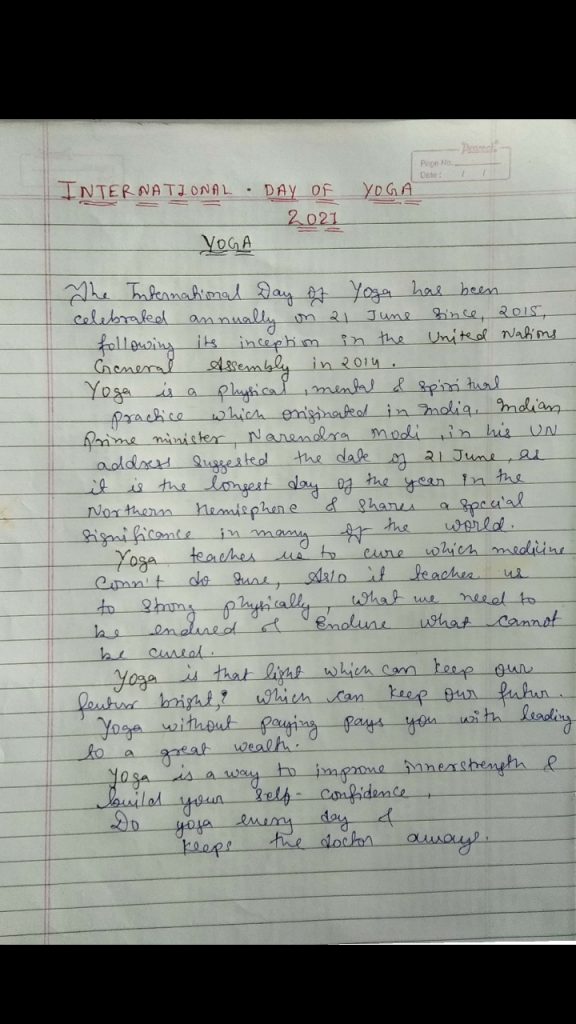 Pramati
Page No.
Date: / /
INTERNATIONAL. DAY OF YOGA
2021
YOGA
The International Day of Yoga has been
celebrated annually on 21 June since, 2015,
following its inception in the United Nations
General Assembly in 2014.
Yoga is a physical, mental & spiritual
practice which originated in India. Indian
Prime minister, Narendra Modi, in his UN
address suggested the date of 21 June, as
it is the longest day of the year in the
Northern Hemisphere & shares a special
significance in many of the world.
Yoga teaches us to cure which medicine
conn't do sure, Also it teaches us
to strong physically, what we need to
be endured & Endure what cannot
be cured.
Yoga is that light which can keep our
bright,? which can keep our futur.
Yoga without paying pays you with leading
to a great wealth.
Yoga is a way to improve innerstrength &
build your self-confidence,
Do yoga every day &
keeps the doctor aways.